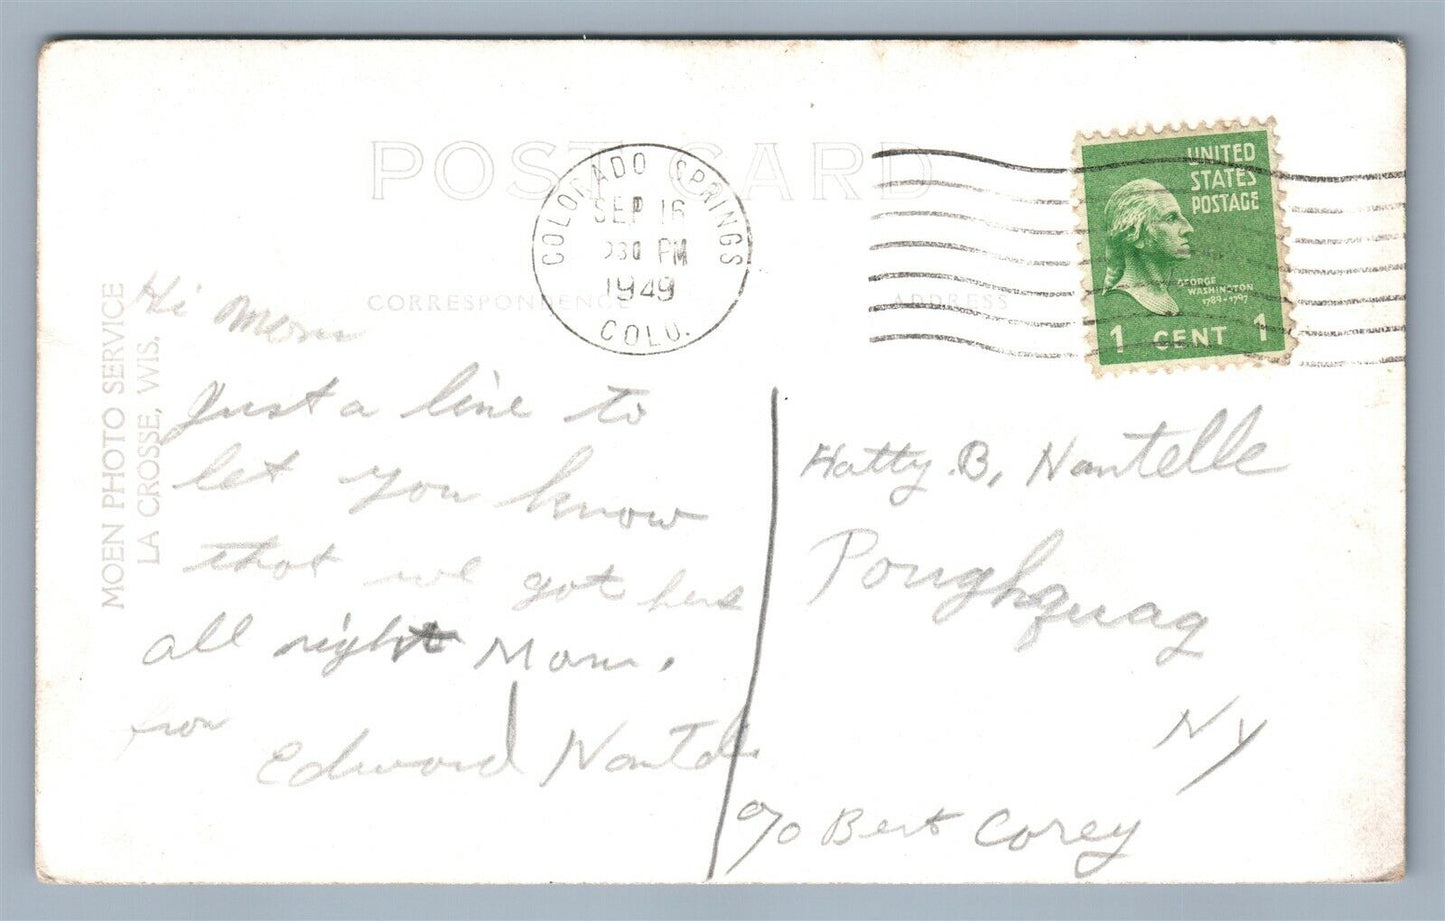 POST CARD
COLORADO SPRINGS
SEP 16
230 PM
1949
COLO.
UNITED
STATES
POSTAGE
GEORGE
WASHINGTON
1789-1797
1 CENT 1
CORRESPONDENCE
ADDRESS
MOEN PHOTO SERVICE
LA CROSSE, WIS.
Hi Mom
Just a line to
let you know
that we got here
all right Mom.
from
Edward Nantelle
Hatty B. Nantelle
Poughquag
NY
c/o Bert Corey